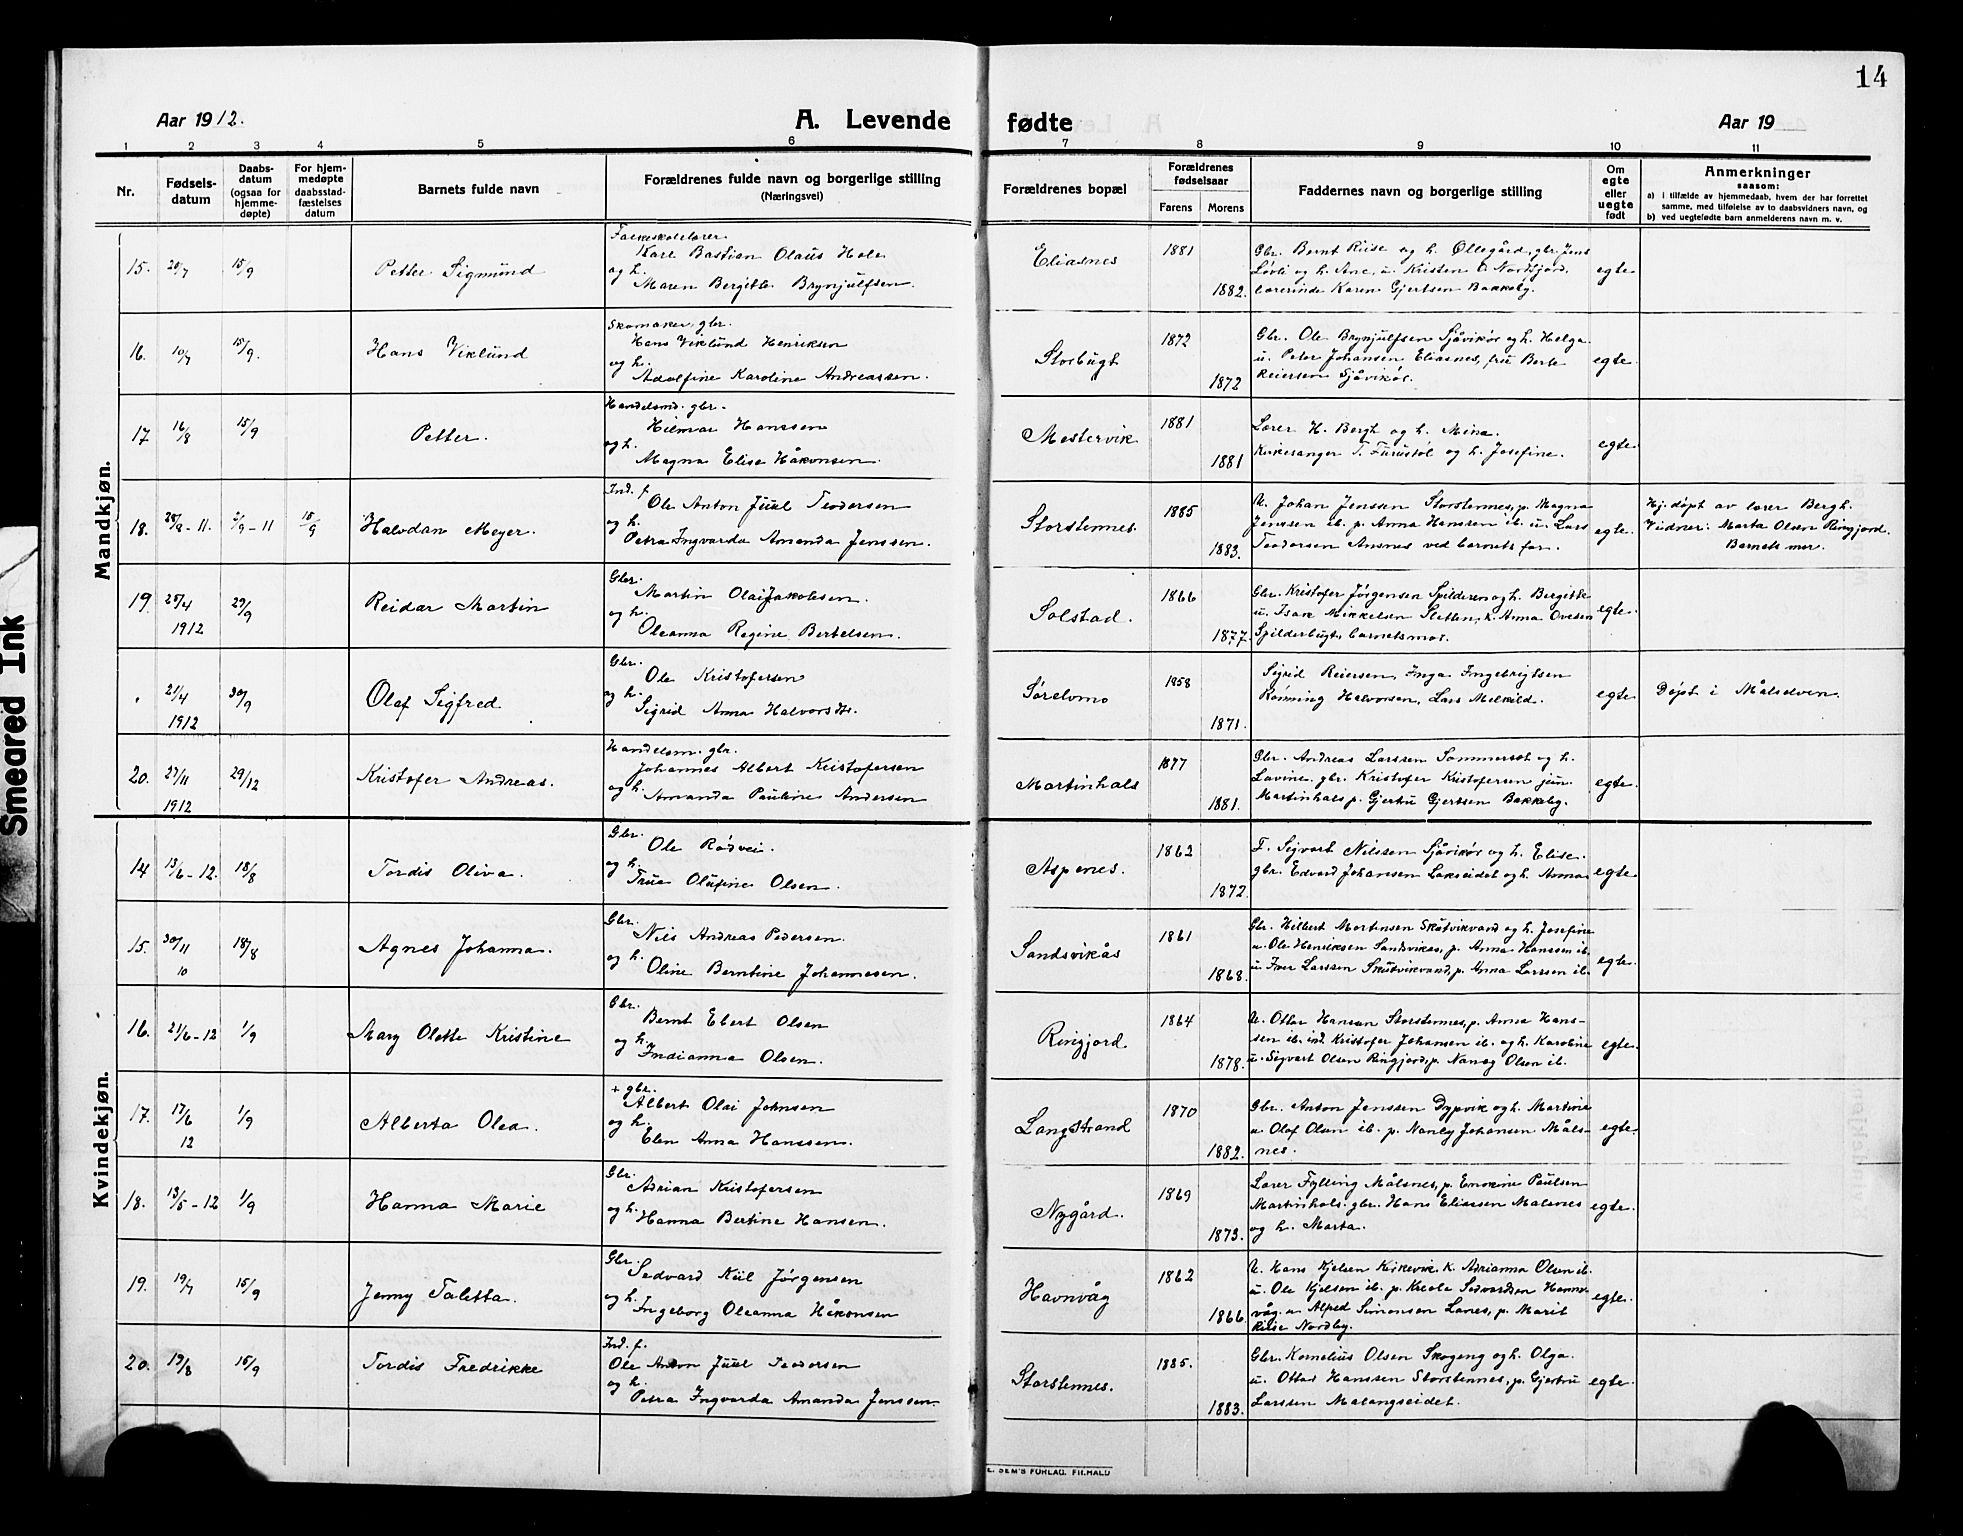 14
Aar 1912.
A. Levende fødte
Aar 19
1 2 3 4 5 6 7 8 9 10 11
Nr.
Fødsels-
datum
Daabs-
datum
(ogsaa for
hjemme-
døpte)
For hjem-
medøpte
daabsstad-
fæstelses
datum
Barnets fulde navn
Forældrenes fulde navn og borgerlige stilling
(Næringsvei)
Forældrenes bopæl
Forældrenes
fødselsaar
Farens Morens
Faddernes navn og borgerlige stilling
Om
egte
eller
uegte
født
Anmerkninger
saasom:
a) i tilfælde av hjemmedaab, hvem der har forrettet
samme, med tilføielse av to daabsvidners navn, og
b) ved uegtefødte barn anmelderens navn m. v.
Mandkjøn.
15. 20/7 15/9 Petter Sigmund
Folkeskolelærer
Karl Bastian Olaus Hole
og h.
Maren Bergitte Brynjulfsen.
Eliasnes 1881 1882.
Gbr. Bernt Riise og h. Ollegård, gbr. Jens
Løvli og h. Ane, u. Kristen Nordfjord,
lærerinde Karen Gjertsen Bakkeby.
egte
16. 10/7 15/9. Hans Viklund
Skomaker, gbr.
Hans Viklund Henriksen
og h.
Adolfine Karoline Andreassen.
Storbugt 1872 1872
Gbr. Ole Brynjulfsen Sjåvikør og h. Helga
u. Peter Johansen Eliasnes, fru Berte
Reiersen Sjåvikør.
egte.
17 16/8 15/9 Petter.
Handelsmd. gbr.
Hilmar Hanssen
og h.
Magna Elise Håkonsen.
Mestervik 1881 1881
Lærer H. Bergh og h. Mina.
Kirkesanger T. Furustøl og h. Josefine.
egte.
18. 28/8 - 11. 2/9 - 11 15/9 Halvdan Meyer.
Ind. f.
Ole Anton Juul Teodorsen
og h.
Petra Ingvarda Amanda Jenssen.
Storstennes 1885 1883.
U. Johan Jensen Storstennes, p. Magna
Jenssen ib. p. Anna Hanssen ib. u. Lars
Teodorsen Ansnes ved barnets far.
egte.
Hj. døpt av lærer Bergh.
Vidner: Marta Olsen Ringjord.
Barnets mor.
19. 25/4 1912 29/9 Reidar Martin
Gbr.
Martin Olai Jakobsen.
og h.
Oleanna Regine Bertelsen.
Solstad. 1866 1877.
Gbr. Kristofer Jørgensen Spilderen og h. Bergitte
u. Isak Mikkelsen Sletten, k. Anna Ovesen
Spilderbugt, barnets mor.
egte.
21/4 1912 30/9 Olaf Sigfred.
Gbr.
Ole Kristofersen
og h.
Sigrid Anna Halvorsdtr.
Sørelvmo 1858 1871.
Sigrid Reiersen, Inga Ingebrigtsen
Rønning Halvorsen, Lars Melkild.
egte
Døpt i Målselven.
20. 27/11 1912 29/12 Kristofer Andreas.
Handelsm. gbr.
Johannes Albert Kristofersen
og h.
Amanda Pauline Andersen
Martinhals 1877 1881.
Gbr. Andreas Larssen Sommerset og h.
Lavine, gbr. Kristofer Kristofersen jun.
Martinhals, p. Gjertru Gjertsen Bakkeby.
egte.
Kvindekjøn.
14 13/6 - 12. 18/8 Tordis Oliva.
Gbr.
Ole Rødvei.
og h.
Trua Olufine Olsen.
Aspenes. 1862 1872.
F. Sigvart Nilssen Sjåvikør og h. Elise.
gbr. Edvard Johansen Lakseidet og h. Anna
egte.
15. 30/11 10 18/8 Agnes Johanna.
Gbr.
Nils Andreas Pedersen.
og h.
Oline Berntine Johannesen.
Sandsvikås 1861 1868.
Gbr. Hilbert Mortensen Skutvikvand og h. Josefine
u. Ole Henriksen Sandsvikås, p. Anna Hanssen ib.
u. Iver Larssen Skutvikvand, p. Anna Larssen ib.
egte.
16. 21/6 - 12 1/9 Mary Olette Kristine
Gbr.
Bernt Ebert Olsen
og h.
Indianna Olsen.
Ringjord. 1864 1878.
U. Ottar Hansen Storstennes, p. Anna Hans-
sen ib. ind. Kristofer Johansen ib. og h. Karoline
u. Sigvart Olsen Ringjord, p. Nancy Olsen ib.
egte.
17. 17/6 12 1/9 Alberta Olea.
+ gbr.
Albert Olai Johnsen
og h.
Elen Anna Hanssen.
Langstrand 1870 1882.
Gbr. Anton Jenssen Dypvik og h. Martine
u. Olaf Olsen ib. p. Nancy Johansen Måls-
nes.
egte.
18. 13/5 - 12 1/9 Hanna Marie
Gbr.
Adrian Kristofersen
og h.
Hanna Bertine Hansen.
Nygård. 1869 1873.
Lærer Fylling Målsnes, p. Emokine Paulsen
Martinhals. gbr. Hans Eliassen Målsnes
og h. Marta.
egte.
19. 19/7 15/9 Jenny Taletta.
Gbr.
Sedvard Kiil Jørgensen
og h.
Ingeborg Oleanna Håkonsen
Havnvåg 1862 1866.
U. Hans Kjelsen Kirkevik, k. Adrianna Olsen ib.
u. Ole Kjelsen ib. p. Kreola Sedvardsen Havn-
våg. u. Alfred Simonsen Lanes, p. Marit
Riise Nordby.
egte.
20. 19/8 15/9 Tordis Fredrikke
Ind. f.
Ole Anton Juul Teodorsen
og h.
Petra Ingvarda Amanda Jenssen.
Storstennes. 1885. 1883.
Gbr. Kornelius Olsen Skogeng og h. Olga.
u. Ottar Hanssen Storstennes, p. Gjertru
Larssen Malangseidet.
egte.
E. SEM'S FORLAG, FR.HALD
Smeared Ink